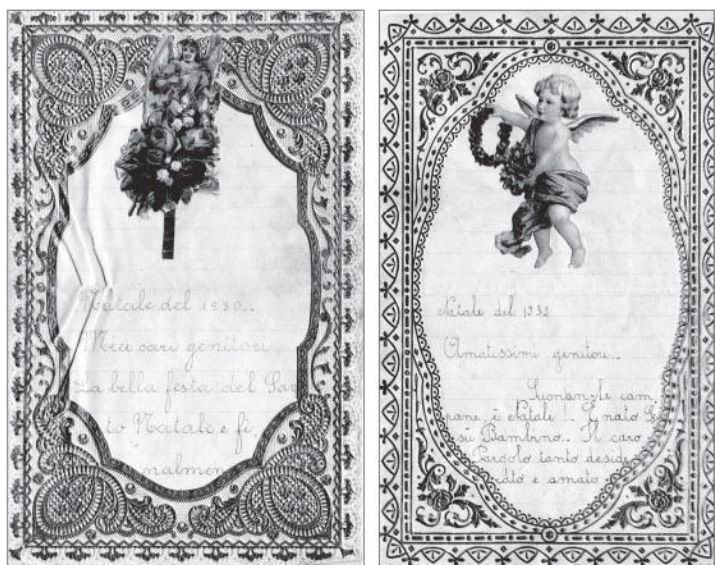 Natale del 1930..
Miei cari genitori
La bella festa del San
to Natale e fi,
nalmen
Natale del 1930
Amatissimi genitori..
Suonan le cam
pane, è Natale!.. È nato Ge
sù Bambino.. Il caro
Pargolo tanto deside
rato e amato